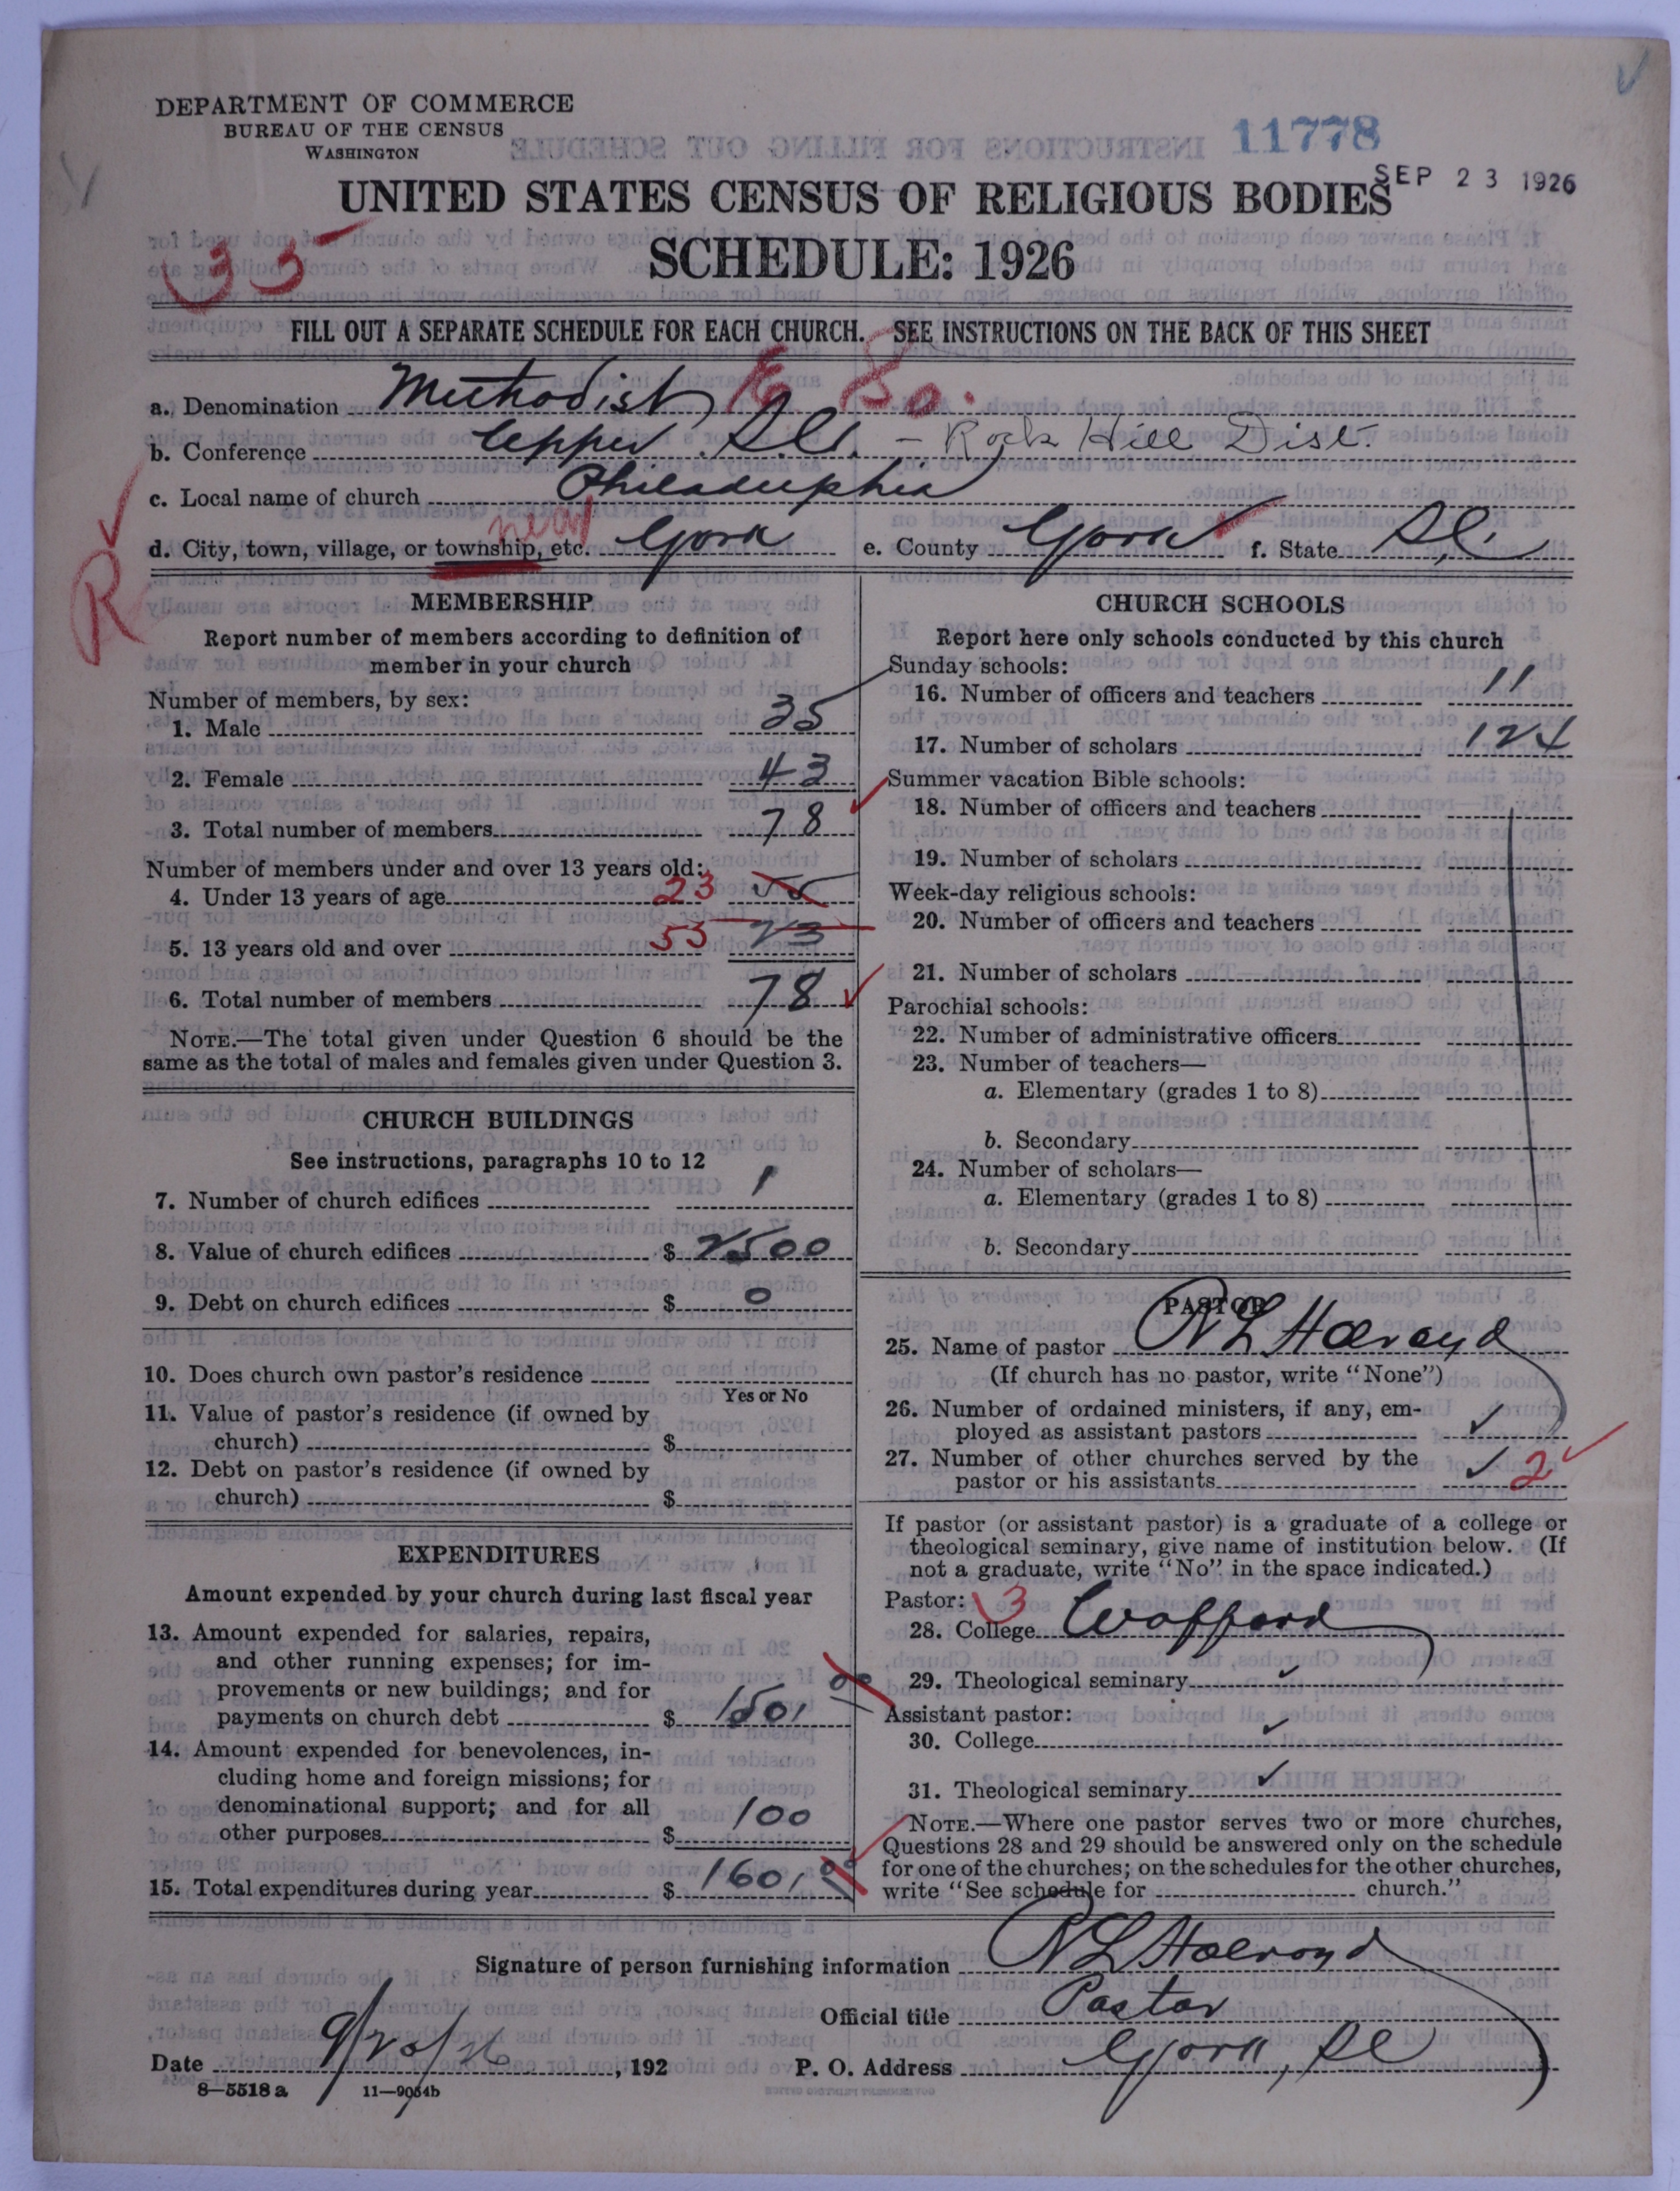 DEPARTMENT OF COMMERCE
BUREAU OF THE CENSUS
WASHINGTON
11778
SEP 23 1926
UNITED STATES CENSUS OF RELIGIOUS BODIES
SCHEDULE: 1926
35
FILL OUT A SEPARATE SCHEDULE FOR EACH CHURCH. SEE INSTRUCTIONS ON THE BACK OF THIS SHEET
a. Denomination Methodist E So.
b. Conference Upper S.C. - Rock Hill Dist.
c. Local name of church Philadelphia
d. City, town, village, or township, etc. near York e. County York f. State S.C.
R
MEMBERSHIP
Report number of members according to definition of
member in your church
Number of members, by sex:
1. Male 35
2. Female 43
3. Total number of members 78
Number of members under and over 13 years old:
4. Under 13 years of age 23 55
5. 13 years old and over 55 23
6. Total number of members 78
NOTE.—The total given under Question 6 should be the
same as the total of males and females given under Question 3.
CHURCH BUILDINGS
See instructions, paragraphs 10 to 12
7. Number of church edifices 1
8. Value of church edifices $ 2500
9. Debt on church edifices $ 0
10. Does church own pastor's residence
Yes or No
11. Value of pastor's residence (if owned by
church) $
12. Debt on pastor's residence (if owned by
church) $
EXPENDITURES
Amount expended by your church during last fiscal year
13. Amount expended for salaries, repairs,
and other running expenses; for im-
provements or new buildings; and for
payments on church debt $ 1501 00
14. Amount expended for benevolences, in-
cluding home and foreign missions; for
denominational support; and for all
other purposes $ 100
15. Total expenditures during year $ 1601 00
CHURCH SCHOOLS
Report here only schools conducted by this church
Sunday schools:
16. Number of officers and teachers 11
17. Number of scholars 124
Summer vacation Bible schools:
18. Number of officers and teachers
19. Number of scholars
Week-day religious schools:
20. Number of officers and teachers
21. Number of scholars
Parochial schools:
22. Number of administrative officers
23. Number of teachers—
a. Elementary (grades 1 to 8)
b. Secondary
24. Number of scholars—
a. Elementary (grades 1 to 8)
b. Secondary
PASTOR
25. Name of pastor R L Holroyd
(If church has no pastor, write "None")
26. Number of ordained ministers, if any, em-
ployed as assistant pastors ✓
27. Number of other churches served by the
pastor or his assistants ✓ 2
If pastor (or assistant pastor) is a graduate of a college or
theological seminary, give name of institution below. (If
not a graduate, write "No" in the space indicated.)
Pastor: 3
28. College Wofford
29. Theological seminary ✓
Assistant pastor:
30. College ✓
31. Theological seminary ✓
NOTE.—Where one pastor serves two or more churches,
Questions 28 and 29 should be answered only on the schedule
for one of the churches; on the schedules for the other churches,
write "See schedule for church."
Signature of person furnishing information R L Holroyd
Official title Pastor
Date 9/20/26, 192 P. O. Address York, SC
8—5518 a 11—9054b